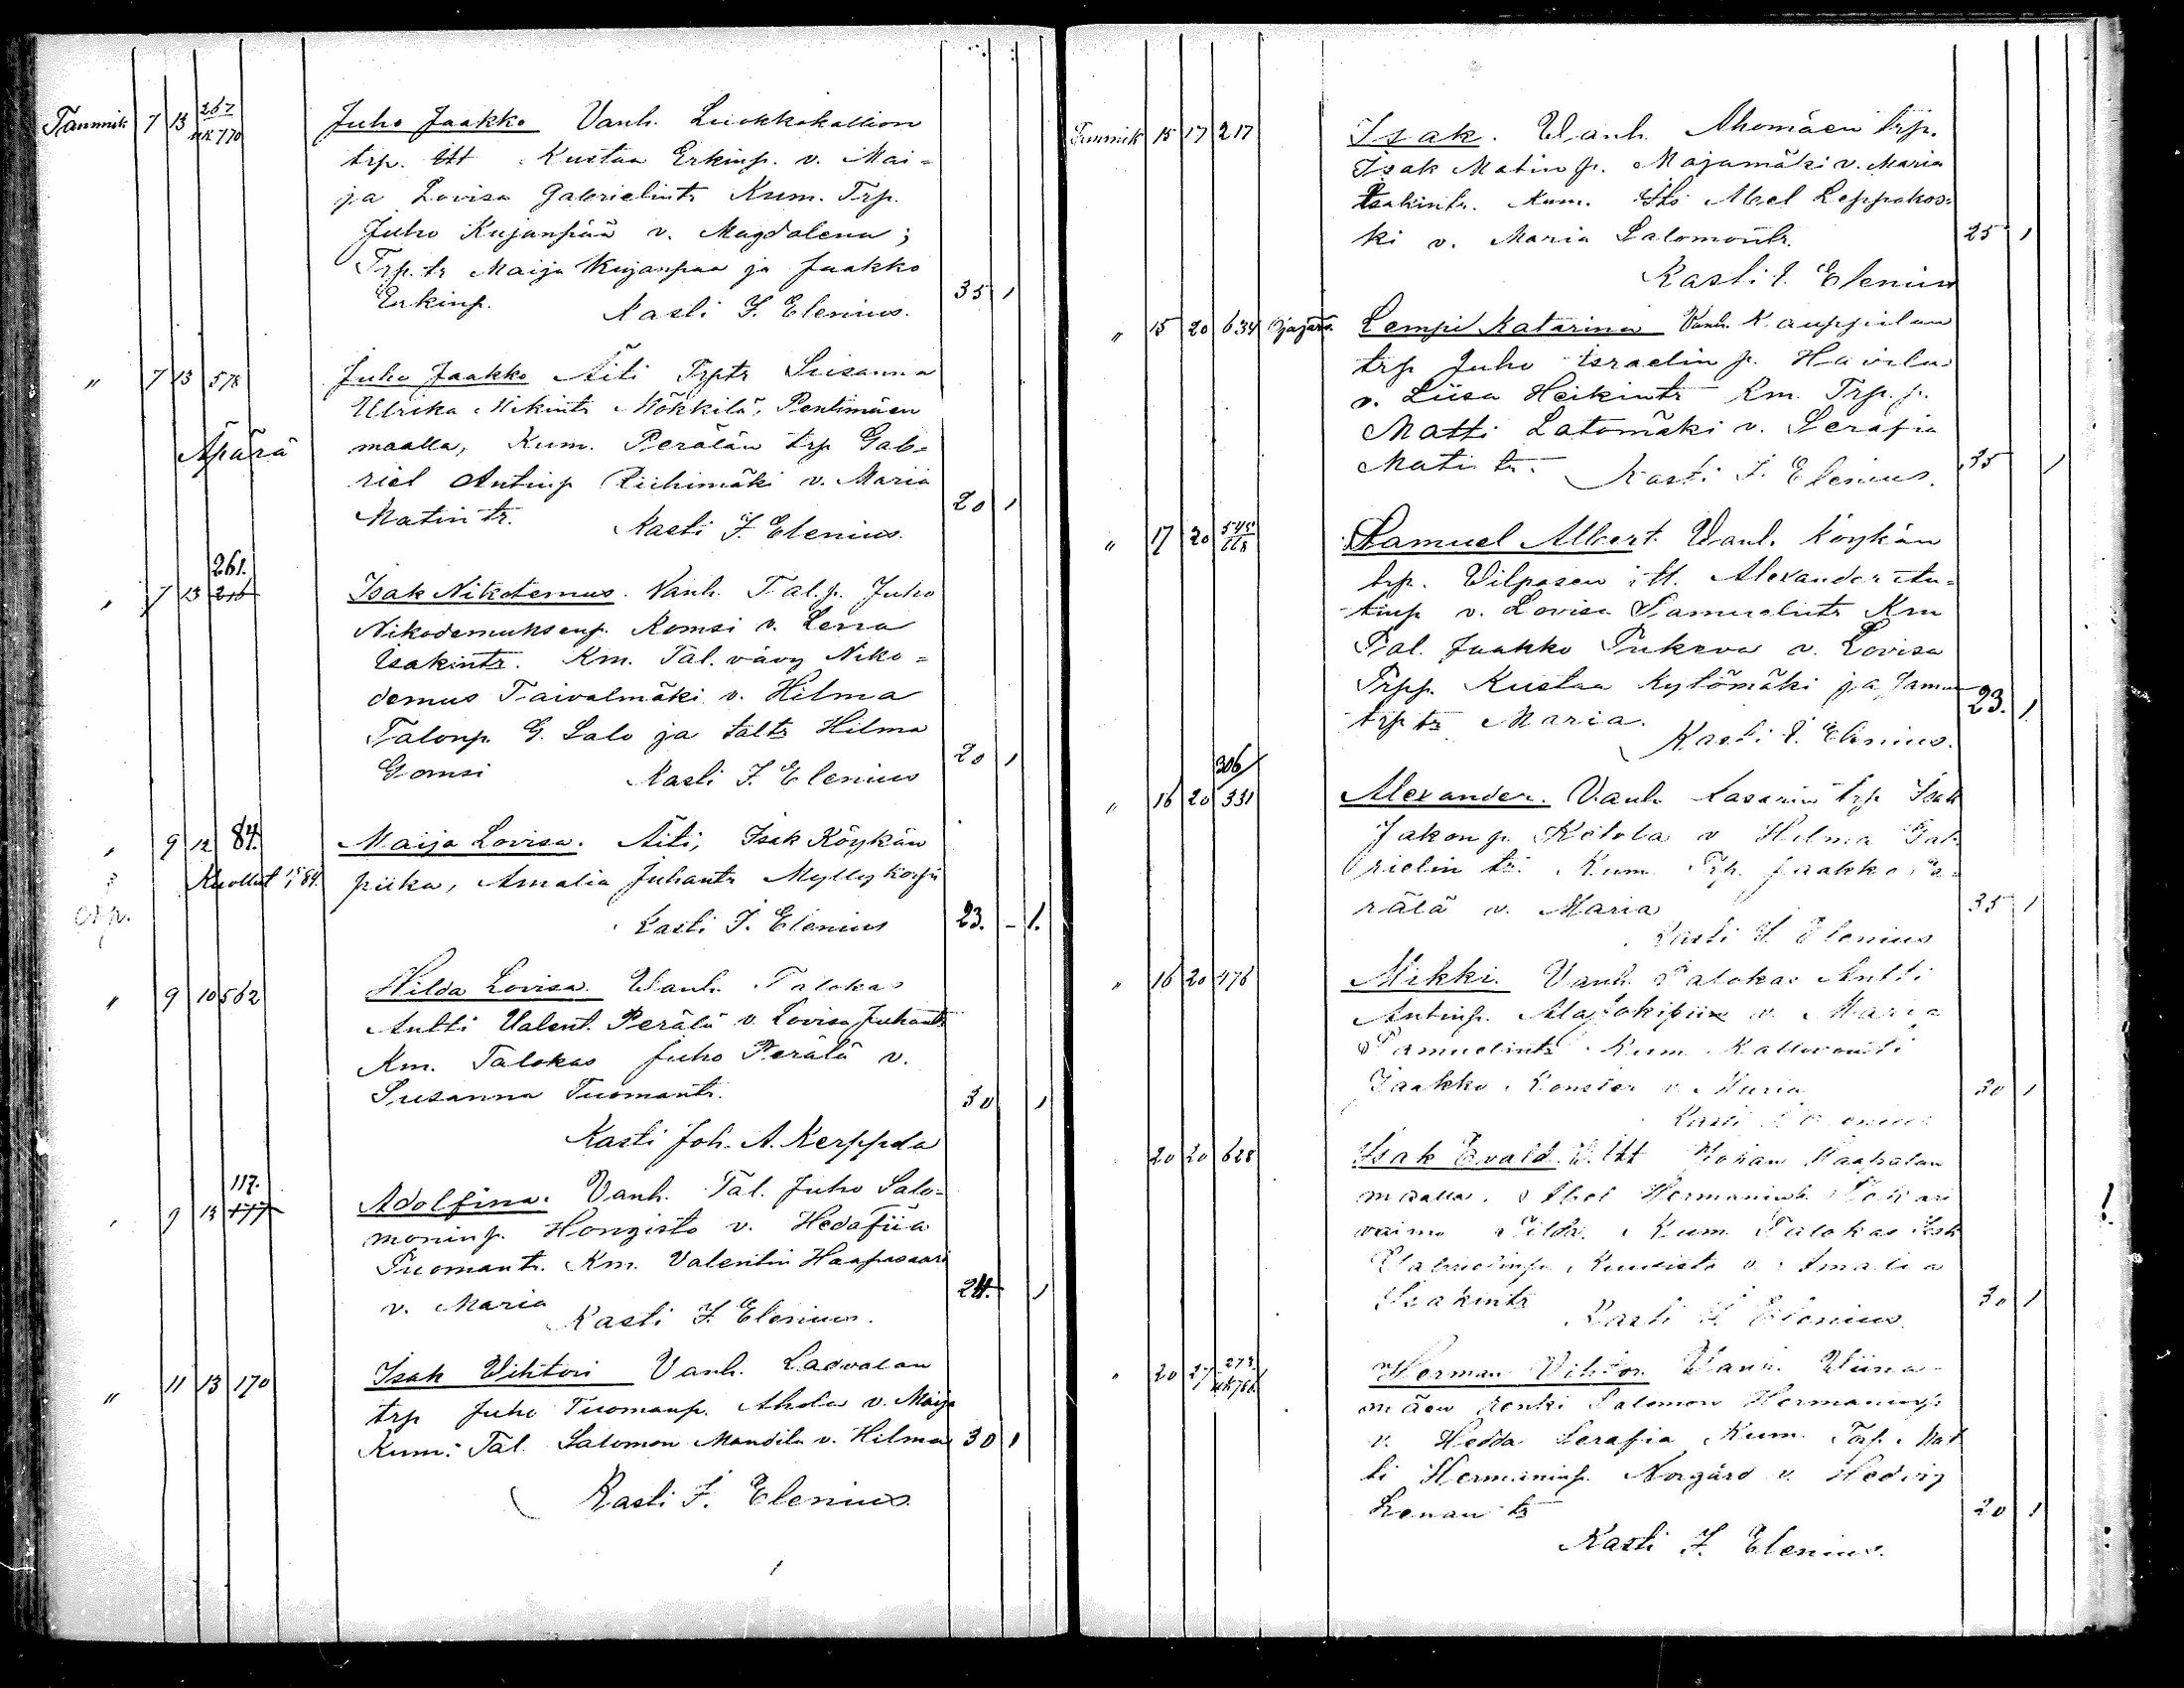 Tammik 7 13 267 Juho Jaakko Vanh. Luokkakallion
MK 770
trp. Itt Kustaa Erkinp. v. Mai=
ja Lovisa Gabrielintr Kum. Trp.
Juho Kujanpää v. Magdalena;
Trp. tr Maija Kujanpaa ja Jaakko
Erkinp. Kasti J. Elenius. 35 1
" 7 13 578 Juho Jaakko Äiti Trptr Susanna
Ulrika Mikintr Mökkilä, Pentimäen
Äpärä maalla, Kum. Perälän trp Gab=
riel Antinp Riihimäki v. Maria
Matintr. Kasti J. Elenius. 20 1
261.
" 7 13 Isak Nikotemus. Vanh. Tal.p. Juho
Nikodemuksenp. Komsi v. Lena
Isakintr. Km. Tal. vävy Niko=
demus Taivalmäki v. Hilma
Talonp. G. Salo ja taltr Hilma
Gomsi Kasti J. Elenius 20 1
" 9 12 84. Maija Lovisa. Äiti, Isak Köykän
Kuollut piika, Amalia Juhantr Myllykorpi
Kasti J. Elenius 23. - 1.
" 9 10 562 Hilda Lovisa. Vanh. Talokas
Antti Valent. Perälä v. Lovisa Juhantr
Km. Talokas Juho Perälä v.
Susanna Tuomantr. 30 1
Kasti Joh. A. Kerppola
117.
" 9 13 177 Adolfina. Vanh. Tal. Juho Salo=
moninp. Hongisto v. Hedafiia
Tuomantr. Km. Valentin Haapasaari
v. Maria Kasti J. Elenius. 24. 1
" 11 13 170 Isak Wihtori Vanh. Ladvalan
trp Juho Tuomanp. Ahola v. Maija
Kum. Tal. Salomon Mandila v. Hilma 30 1
Kasti J. Elenius.
Tammik 15 17 217 Isak. Vanh. Ahomäen trp.
Isak Matinp. Majamäki v. Maria
Isakintr. Kum. Itt Abel Leppakos=
ki v. Maria Salomontr. 25 1
Kasti J. Elenius
" 15 20 634 Lempi Katarina Vanh. Kauppilan
trp Juho Israelinp. Havila
v. Liisa Heikintr Km. Trp. p.
Matti Latomäki v. Serafia
Matintr. Kasti J. Elenius. 35 1
" 17 20 545 Samuel Albert. Vanh. Köykän
668
trp. Vilpasen itt. Alexander An=
tinp v. Lovisa Samuelintr Km
Tal. Jaakko Pukeva v. Lovisa
Trpp. Kustaa Kytömäki ja
trp tr Maria. 23. 1.
Kasti J. Elenius.
306
" 16 20 331 Alexander. Vanh. Kasarin trp Isak
Jakonp. Ketola v Hilma Gab=
rielin tr. Kum. Trp. Jaakko Pe=
rälä v. Maria 35 1
Kasti J. Elenius
" 16 20 476 Mikki. Vanh. Talokas Antti
Antinp. Alajokipiin v. Maria
Samuelintr Kum.
Jaakko v Maria 30 1
Kasti J. Elenius
20 20 628 Isak Evald. Itt Kaapalan
maalla. Abel Hermaninp.
vaimo Kum. Talokas Isak
Gabrielinp. Kuusisto v. Amalia
Isakintr 30 1
Kasti J. Elenius
" 20 27 273 Herman Vihtor. Vanh. Viina=
MK 786
mäen renki Salomon Hermaninp.
v. Hedda Serafia Kum. Trp. Mat
ti Hermaninp. Norgård v. Hedvig
tr 20 1
Kasti J. Elenius.